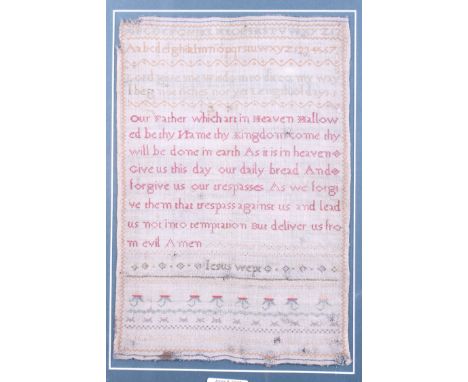 Aabcdefghiklmnopqrstuwxyz1234567
Lord give me wisdom to direct my way
I beg not riches nor yet length of days
Our Father which art in Heaven Hallow
ed be thy Name thy Kingdom come thy
will be done in earth As it is in heaven
Give us this day our daily bread And
forgive us our trespasses As we forgi
ve them that trespass against us and lead
us not into temptation But deliver us fro
m evil Amen
Jesus wept